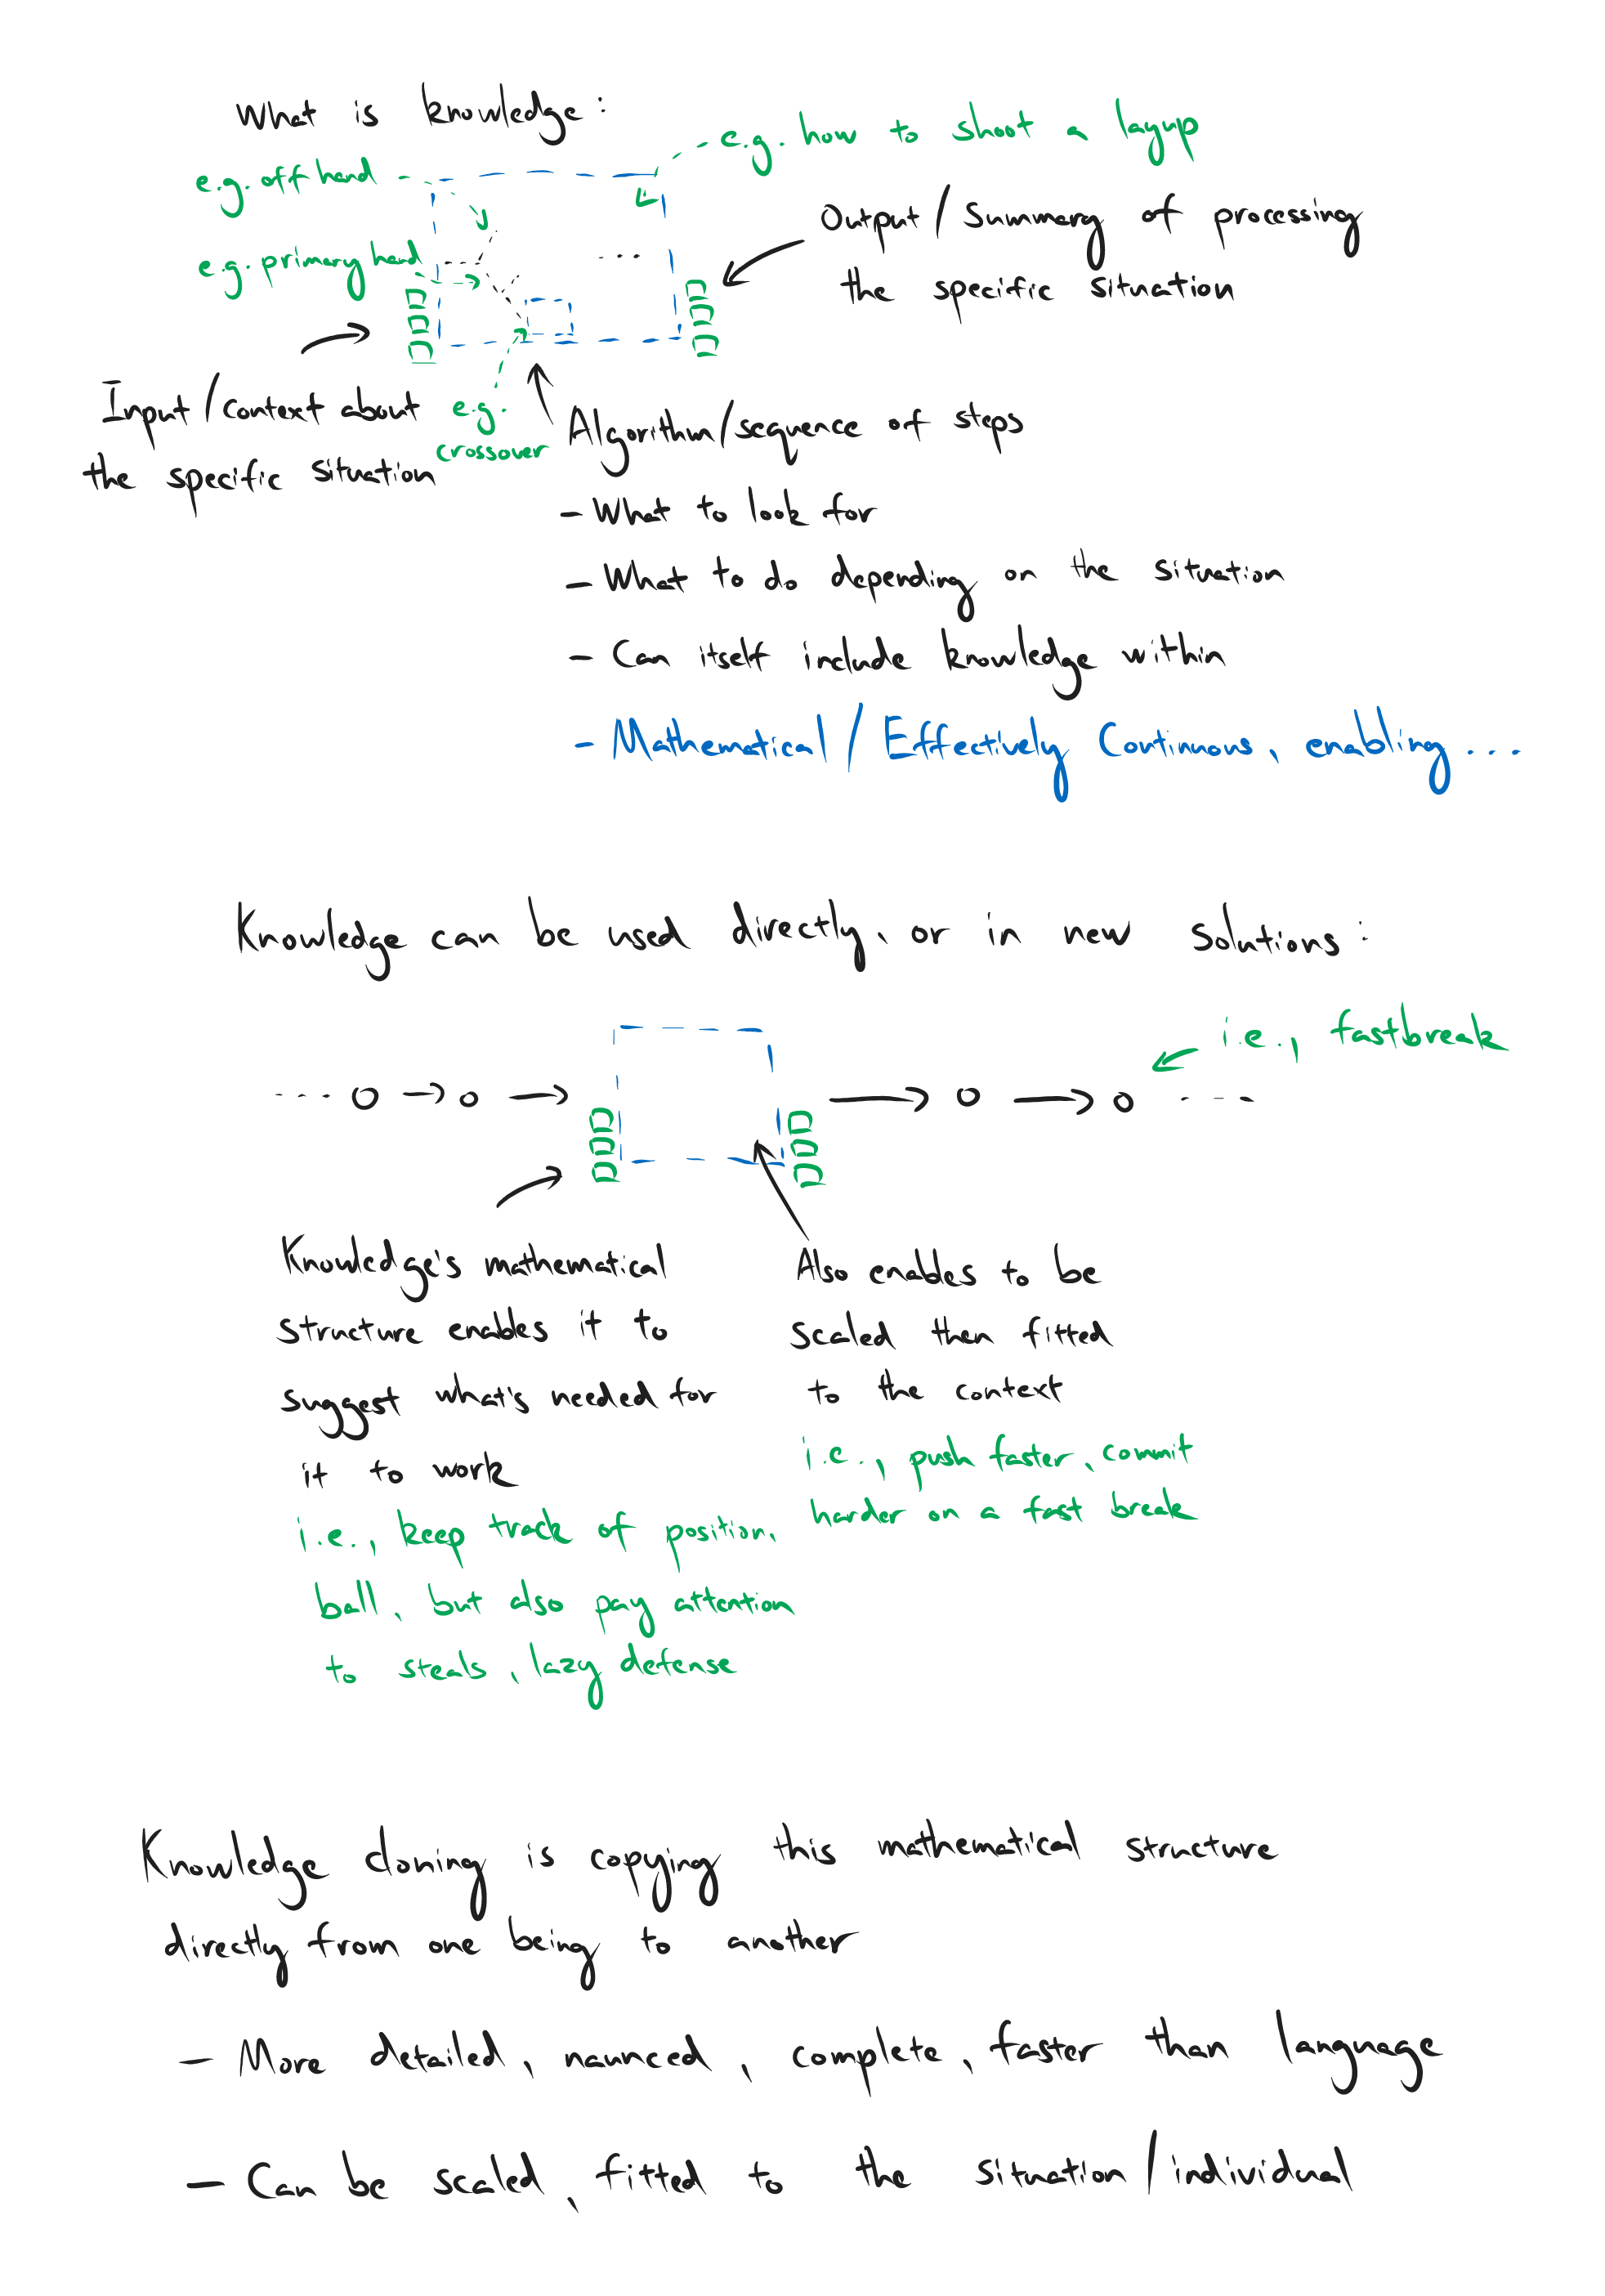 What is knowledge:
e.g. how to shoot a layup
e.g. off hand
Output/Summary of processing
the specific situation
e.g. primary hand
...
Input/context about
the specific situation
e.g.
crossover
Algorithm/sequence of steps
- What to look for
- What to do depending on the situation
- Can itself include knowledge within
- Mathematical/Effectively Continuous, enabling...
Knowledge can be used directly, or in new solutions:
i.e., fastbreak
Knowledge's mathematical
structure enables it to
suggest what's needed for
it to work
i.e., keep track of position,
ball, but also pay attention
to steals, lazy defense
Also enables to be
scaled then fitted
to the context
i.e., push faster, commit
harder on a fast break
Knowledge cloning is copying this mathematical structure
directly from one being to another
- More detailed, naunced, complete, faster than language
- Can be scaled, fitted to the situation/individual